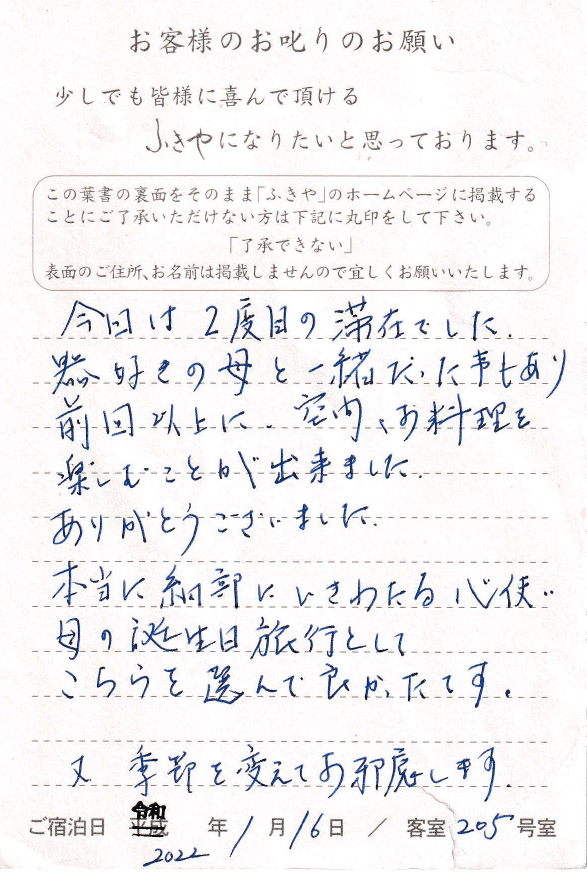 お客様のお叱りのお願い
少しでも皆様に喜んで頂ける
ふきやになりたいと思っております。
この葉書の裏面をそのまま「ふきや」のホームページに掲載する
ことにご了承いただけない方は下記に丸印をして下さい。
「了承できない」
表面のご住所、お名前は掲載しませんので宜しくお願いいたします。
今回は2度目の滞在でした。
器好きの母と一緒だった事もあり
前回以上に、空間、お料理を
楽しむことが出来ました。
ありがとうございました。
本当に細部にいきわたる心使い
母の誕生日旅行として
こちらを選んで良かったです。
又 季節を変えてお邪魔します。
令和
ご宿泊日 平成 年 1月16日 / 客室 205号室
2022